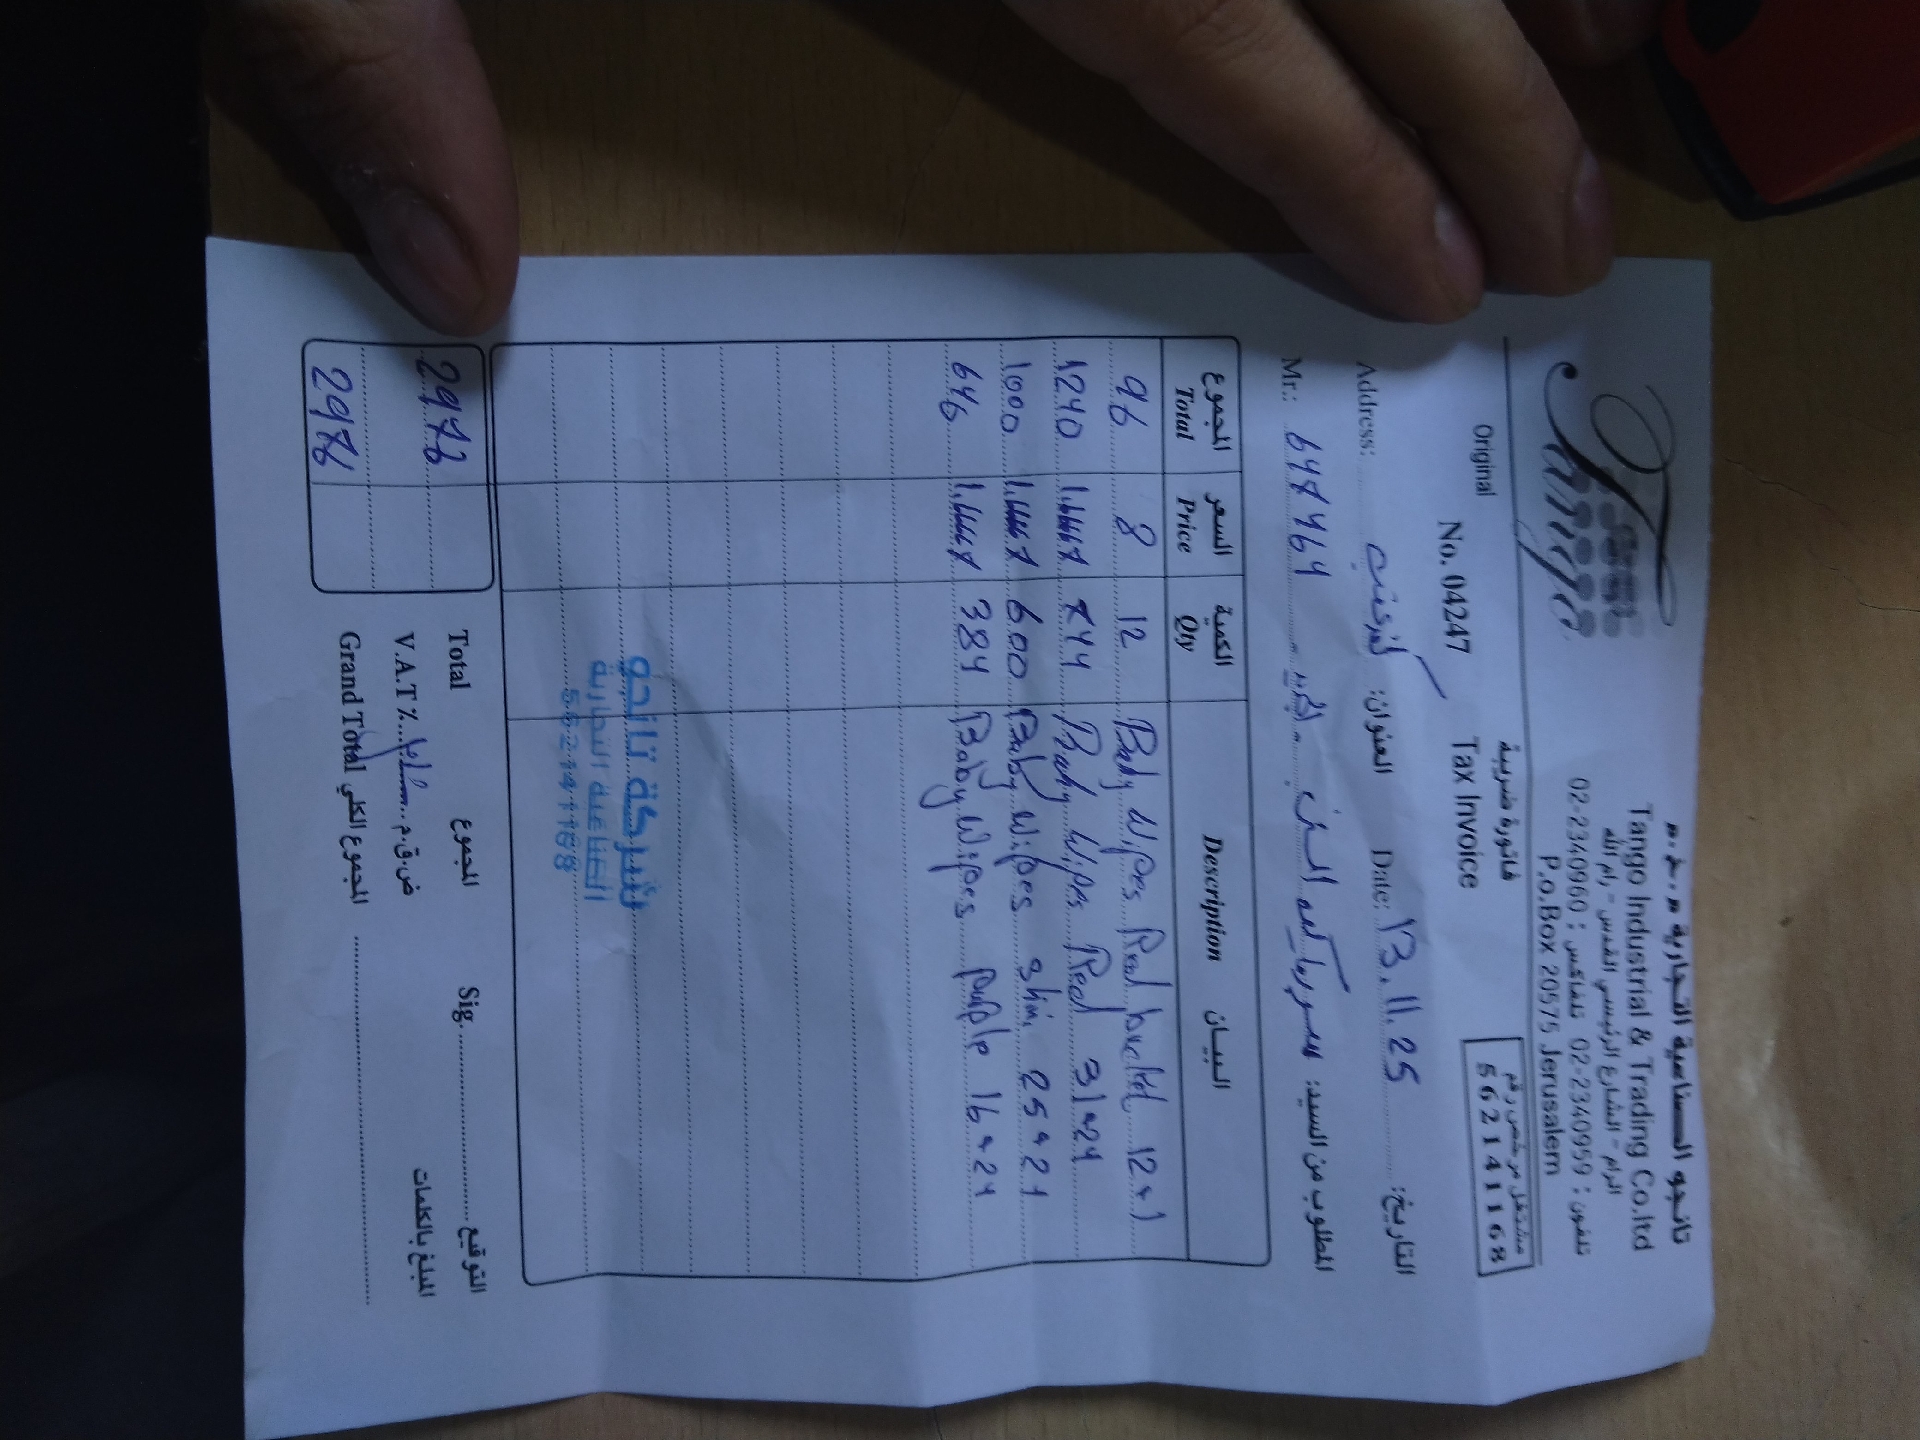 Tango
تانجو الصناعية التجارية م.خ.م
Tango Industrial & Trading Co.ltd
الرام - الشارع الرئيسي القدس - رام الله
تلفون : 02-2340959 تلفاكس : 02-2340960
P.o.Box 20575 Jerusalem
فاتورة ضريبية
مشتغل مرخص رقم
Original No. 04247 Tax Invoice 562141168
Address: العنوان: Date: 13.11.25 التاريخ:
Mr.: المطلوب من السيد:
المجموع السعر الكمية
Total Price Qty Description البيــان
96 8 12 Baby Wipes Red bucket 12*1
1240 1.6667 744 Baby Wipes Red 31*24
1000 1.6667 600 Baby Wipes 25*24
646 1.6667 384 Baby Wipes purple 16*24
شركة تانجو
الصناعية التجارية
562141168
2976 Total المجموع Sig. التوقيع
V.A.T٪ ض.ق.م. المبلغ بالكلمات
2976 Grand Total المجموع الكلي